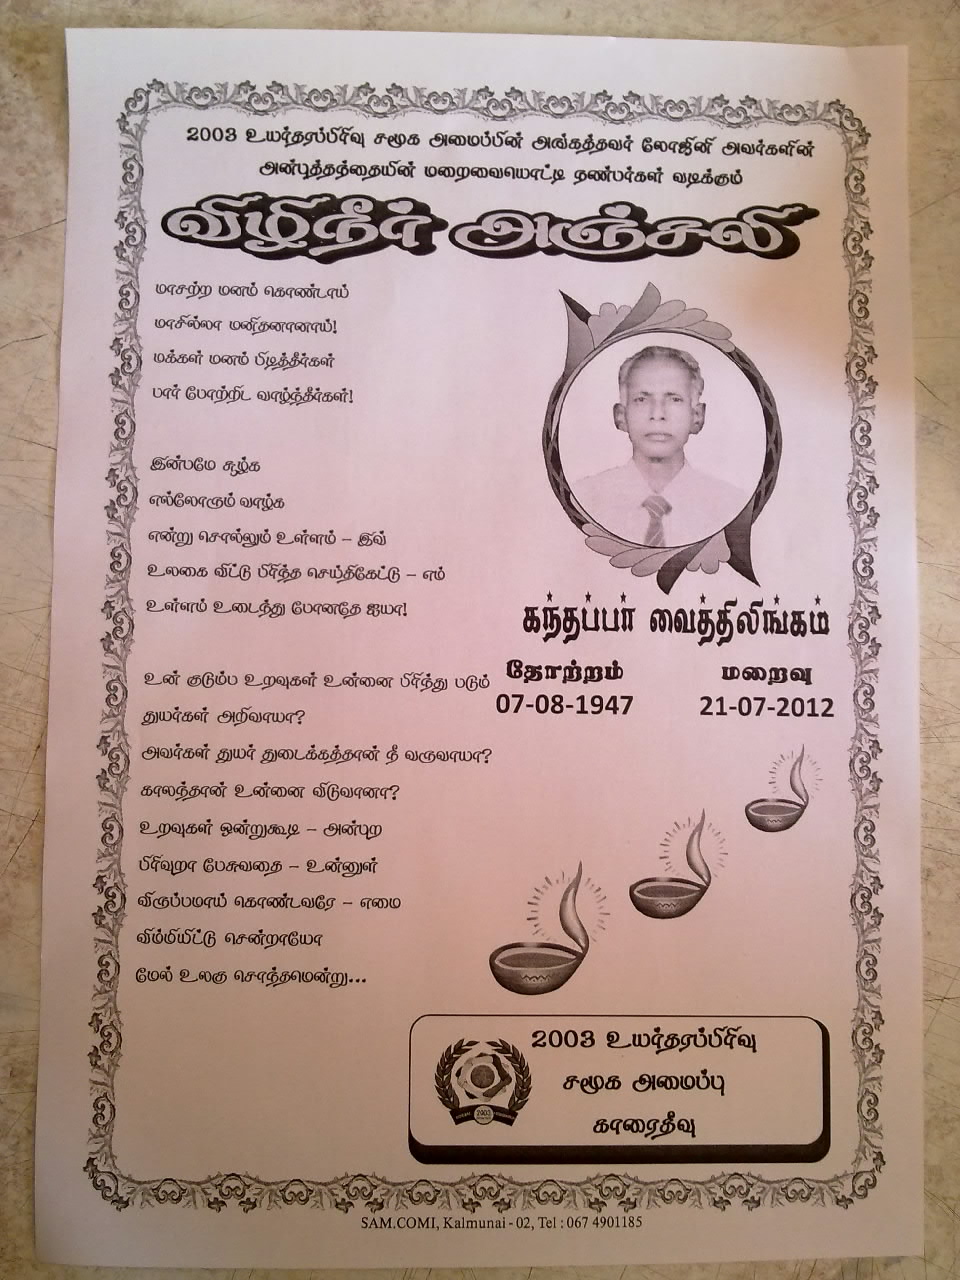 2003 உயர்தரப்பிரிவு சமூக அமைப்பின் அங்கத்தவர் லோஜினி அவர்களின்
அன்புத்தந்தையின் மறைவையொட்டி நண்பர்கள் வடிக்கும்
விழிநீர் அஞ்சலி
மாசற்ற மனம் கொண்டாய்
மாசில்லா மனிதனானாய்!
மக்கள் மனம் பிடித்தீர்கள்
பார் போற்றிட வாழ்ந்தீர்கள்!
இன்பமே சூழ்க
எல்லோரும் வாழ்க
என்று சொல்லும் உள்ளம் – இவ்
உலகை விட்டு பிரிந்த செய்திகேட்டு – எம்
உள்ளம் உடைந்து போனதே ஐயா!
உன் குடும்ப உறவுகள் உன்னை பிரிந்து படும்
துயர்கள் அறிவாயா?
அவர்கள் துயர் துடைக்கத்தான் நீ வருவாயா?
காலந்தான் உன்னை விடுவானா?
உறவுகள் ஒன்றுகூடி – அன்புற
பிரிவுறா பேசுவதை – உன்னுள்
விருப்பமாய் கொண்டவரே – எமை
விம்மியிட்டு சென்றாயோ
மேல் உலகு சொந்தமென்று...
கந்தப்பர் வைத்திலிங்கம்
தோற்றம் மறைவு
07-08-1947 21-07-2012
2003 உயர்தரப்பிரிவு
சமூக அமைப்பு
காரைதீவு
2003
SAM.COMI, Kalmunai - 02, Tel : 067 4901185